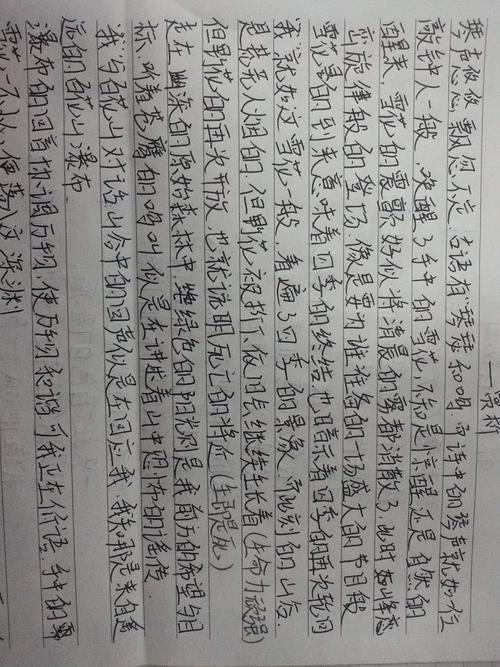 琴声悠悠 飘忽不定 古语有"琴瑟和鸣"而诗中的琴声就如位
敲钟人一般，唤醒了手中的雪花，不知是惊醒还是自然的
醒来，雪花的震颤好似将清晨的雾都消散了，此时如山峰
旋律般的登场，像是要为谁准备的一场盛大的节日般
雪花的到来意味着四季的终结，也暗示着四季的再次轮回
我就如这雪花一般，看遍了四季的景象，而此刻的山谷
是荒无人烟的，但野花被折下依旧会继续生长着(生命力顽强)
但野花的再次开放，也就说明死亡的将在(生而是死)
走在幽深的原始森林中，绿色的阳光洒是我前方的希望与目
标，听着苍鹰的鸣叫似是在讲述着山中恐怖的谣传
我与百花山对话，山谷中的回声似是在回应我，我知那是来自遥
远的百花山瀑布
瀑布的回音协调万物，使万物和谐，可我正在伫语，手中的雪
雪花一不小心便落入这深渊